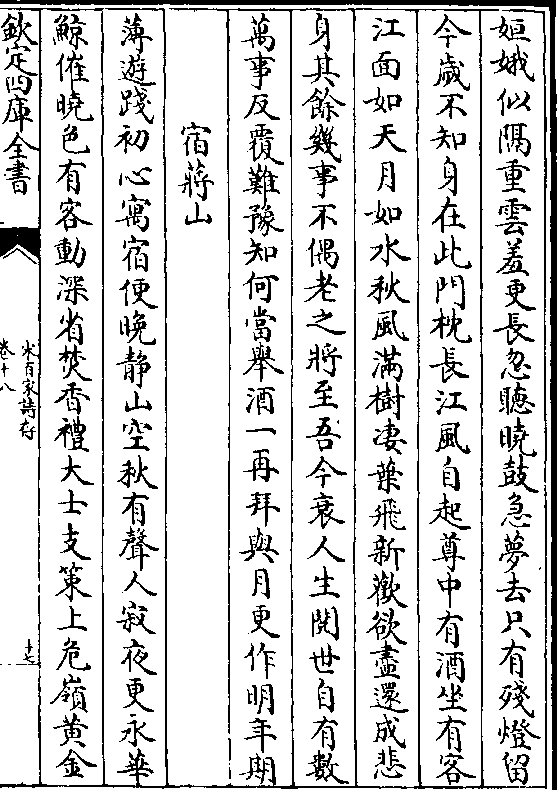 姮娥似隔重雲羞更長忽聽曉鼓急夢去只有殘燈留
今歲不知身在此門枕長江風自起尊中有酒坐有客
江面如天月如水秋風滿樹凄葉飛新歡欲盡還成悲
身其餘幾事不偶老之將至吾今衰人生閱世自有數
萬事反覆難豫知何當舉酒一再拜與月更作明年期
宿蔣山
薄遊踐初心寓宿便晚靜山空秋有聲人寂夜更永華
鯨催曉色有客動深省焚香禮大士支策上危嶺黃金
欽定四庫全書
宋百家詩存
卷十八
十七